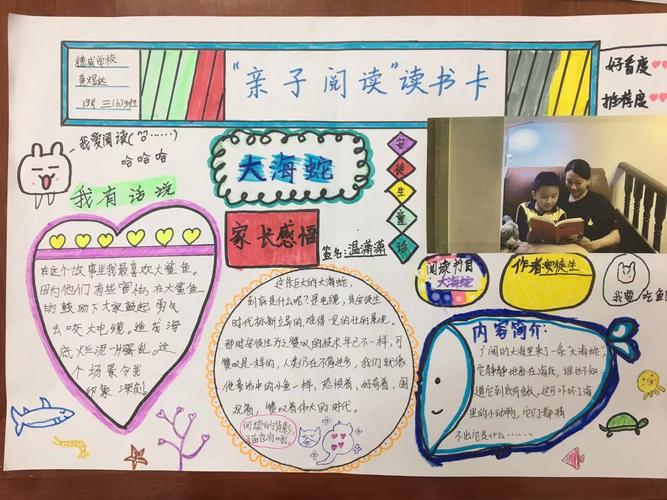 德威学校
三(6)班
"亲子阅读"读书卡
好看度
推荐度
我爱阅读(哈……)
哈哈哈
我有话说
大海蛇
安徒生童话
家长感悟
签名:温潇潇
在这个故事里我最喜欢大鲨鱼。
因为他们有些害怕,在大鲨鱼
的鼓励下大家鼓起勇气
去咬大电缆。造成海
底烂泥一片骚乱。这
个场景令我
印象深刻。
这条巨大的大海蛇,
到底是什么呢?是电缆,是安徒生
时代标新立异的,难得一见的壮的景观。
那时与徒生为之赞叹的技术早已不一样,可
赞叹是一样的,人类仍在不断进步,我们就像
他童话中的小鱼一样,热捧着、好奇着、围
观着、赞叹着伟大的时代。
阅读的背影
阅读书目
大海蛇
作者:安徒生
内容简介:
广阔的大海里来了一条"大海蛇",
它静静地卧在海底,谁也不知
道它到底有多长、这可吓坏了海
里的小动物,它们都猜
不出它是什么……